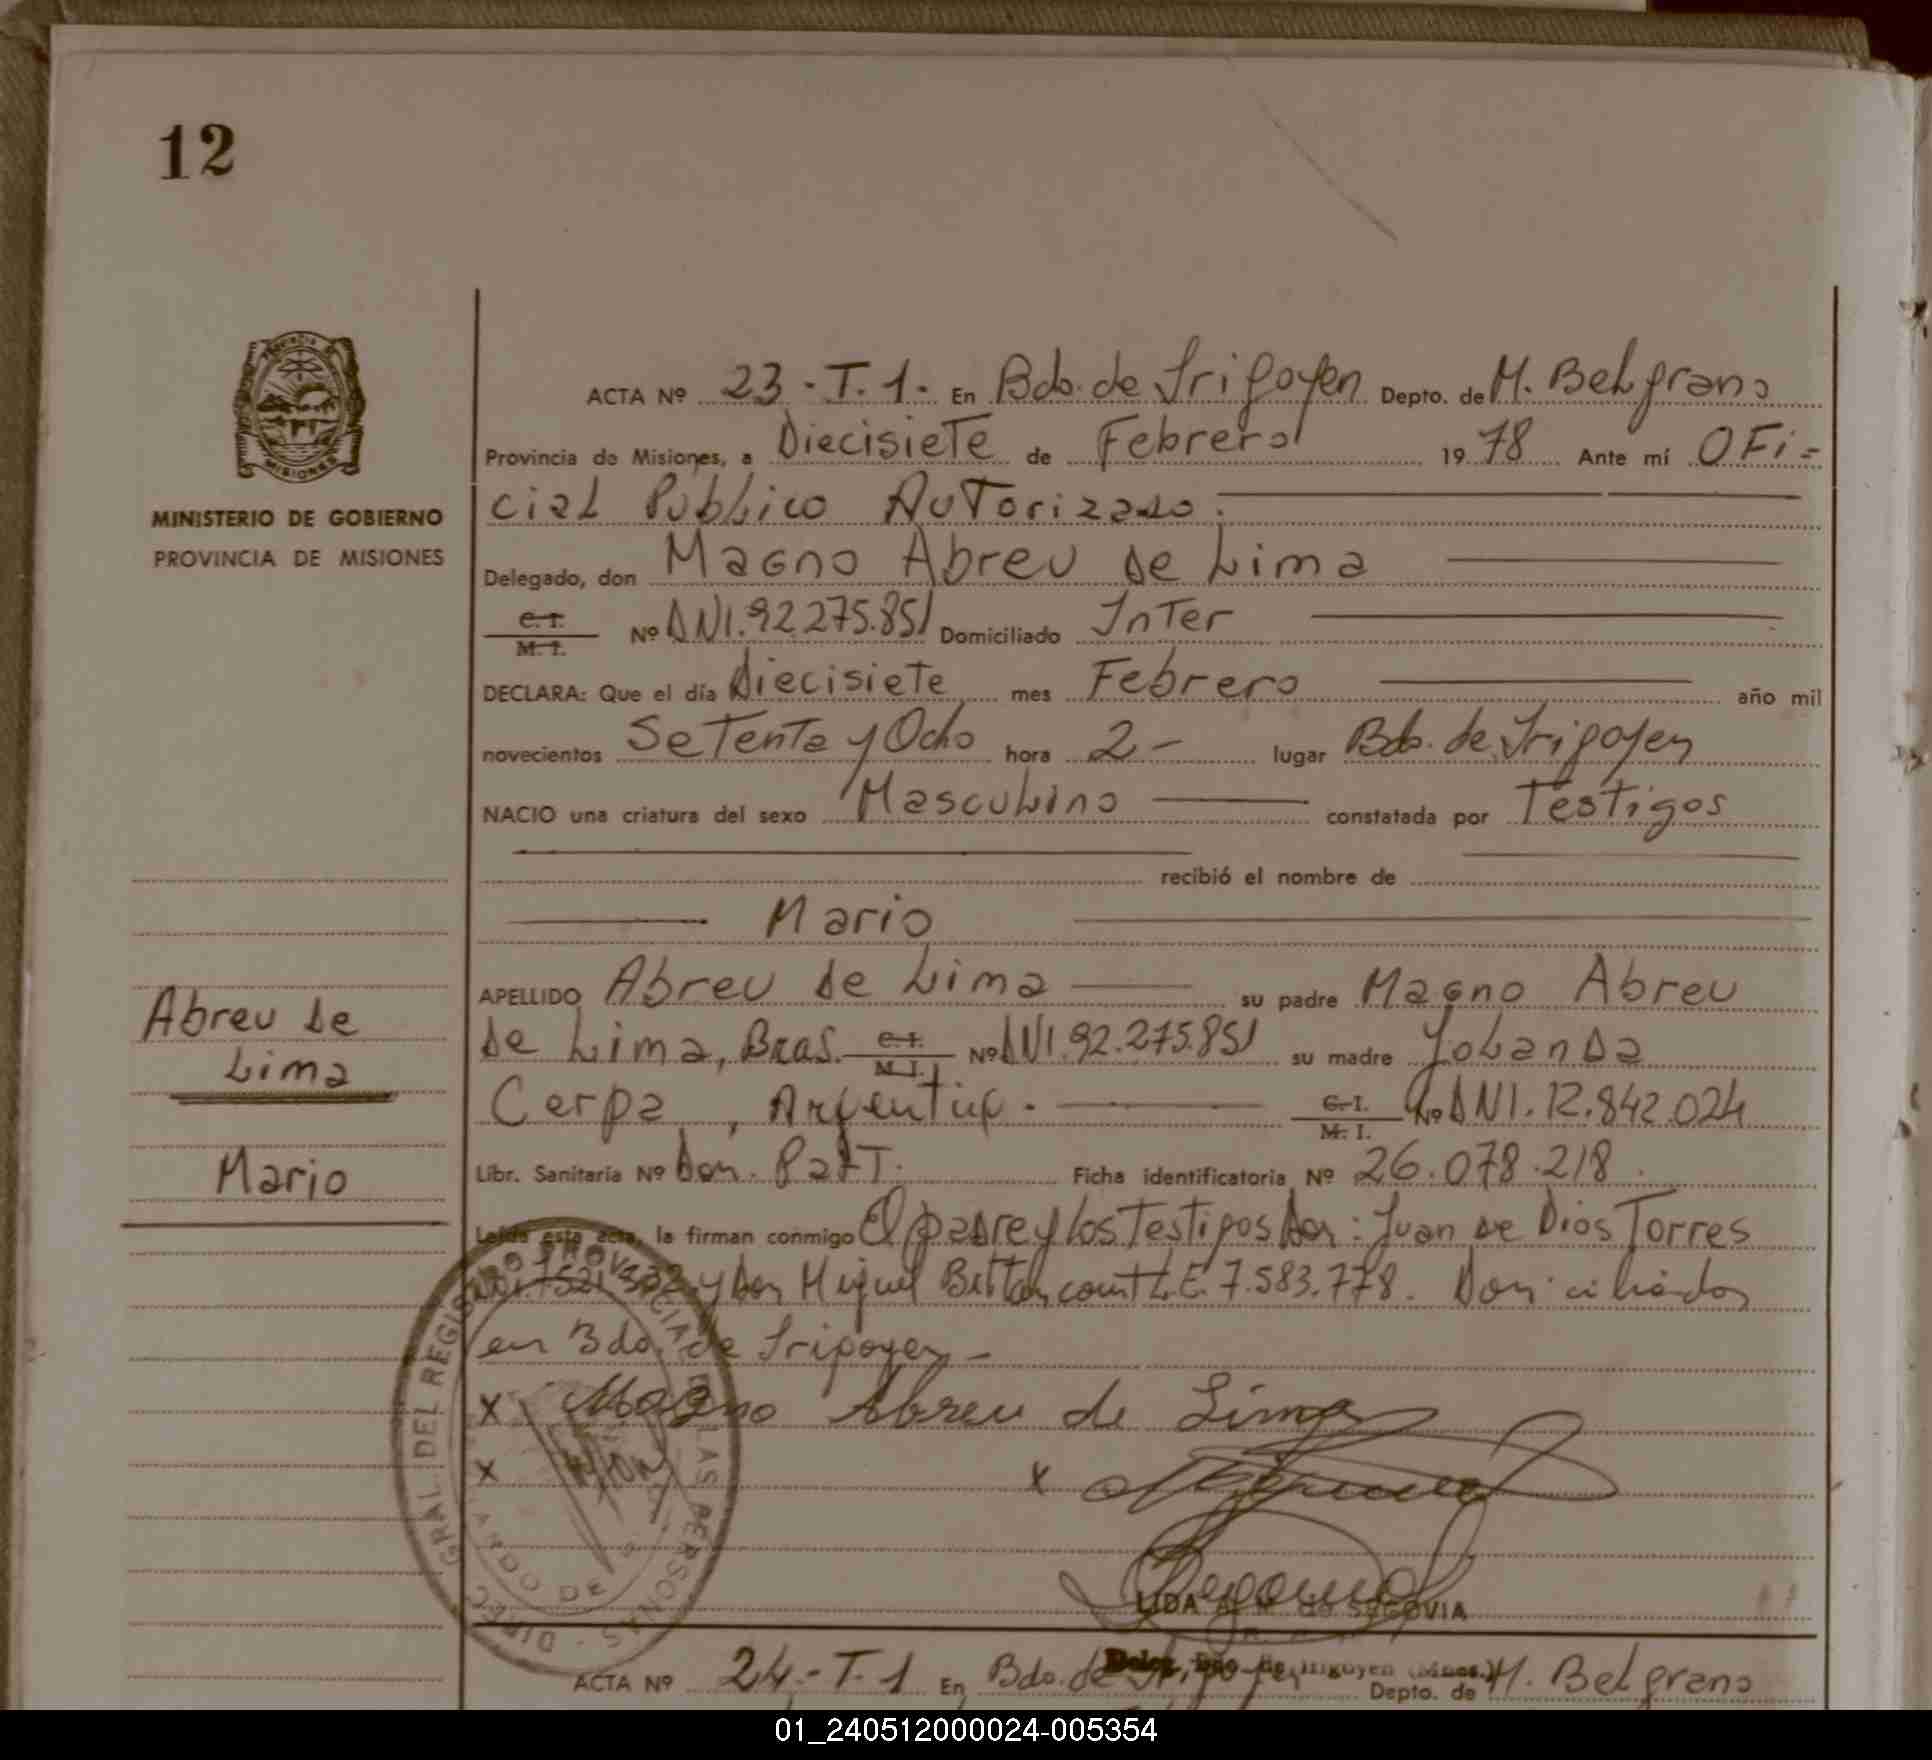 12
ACTA Nº 23.-T.1.- En Bdo. de Irigoyen Depto. de M. Belgrano
Provincia de Misiones, a Diecisiete de Febrero 1978 Ante mí OFi=
cial Público Autorizado.
MINISTERIO DE GOBIERNO
PROVINCIA DE MISIONES
Delegado, don Magno Abreu De Lima
C. I.
M. I. Nº DNI.92.275.851 Domiciliado Inter
DECLARA: Que el día Diecisiete mes Febrero año mil
novecientos Setenta y Ocho hora 2- lugar Bdo. de Irigoyen
NACIO una criatura del sexo Masculino constatada por Testigos
recibió el nombre de
Mario
APELLIDO Abreu De Lima su padre Magno Abreu
De Lima, Bras. C. I. M. I. Nº DNI.92.275.851 su madre Yolanda
Cerpa, Argentina.- C. I. M. I. Nº DNI.12.842.024
Abreu De
Lima
Mario
Libr. Sanitaria Nº Ficha identificatoria Nº 26.078.218.
Leída esta acta, la firman conmigo El padre y los Testigos Don: Juan De Dios Torres
y Don Miguel Bittencourt L.E. 7.583.778. Domiciliados
en Bdo. de Irigoyen-
x Magno Abreu de Lima
x x
DIREC. GRAL. DEL REGISTRO PROVINCIAL DE LAS PERSONAS
LIDA de SEGOVIA
Deleg. Bdo. de Irigoyen (Mnes.)
ACTA Nº 24.-T.1 En Bdo. de Irigoyen Depto. de M. Belgrano
01_240512000024-005354